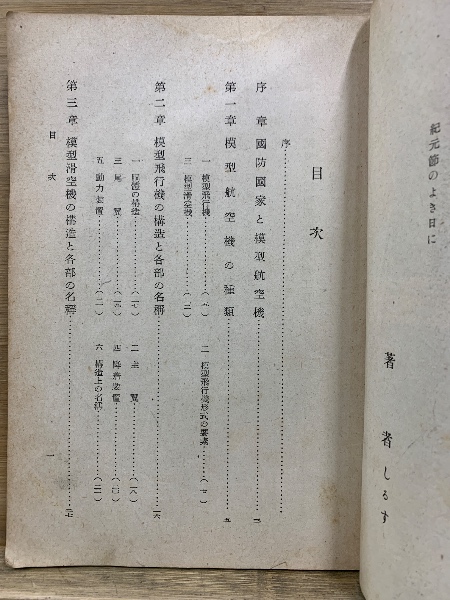 紀元節のよき日に
著者しるす
目次
序
序章 國防國家と模型航空機
第一章 模型航空機の種類
一 模型飛行機
二 模型飛行機形式の要素
三 模型滑空機
第二章 模型飛行機の構造と各部の名稱
一 胴體の構造
二 主翼
三 尾翼
四 降着裝置
五 動力裝置
六 構造上の名稱
第三章 模型滑空機の構造と各部の名稱
目次
一